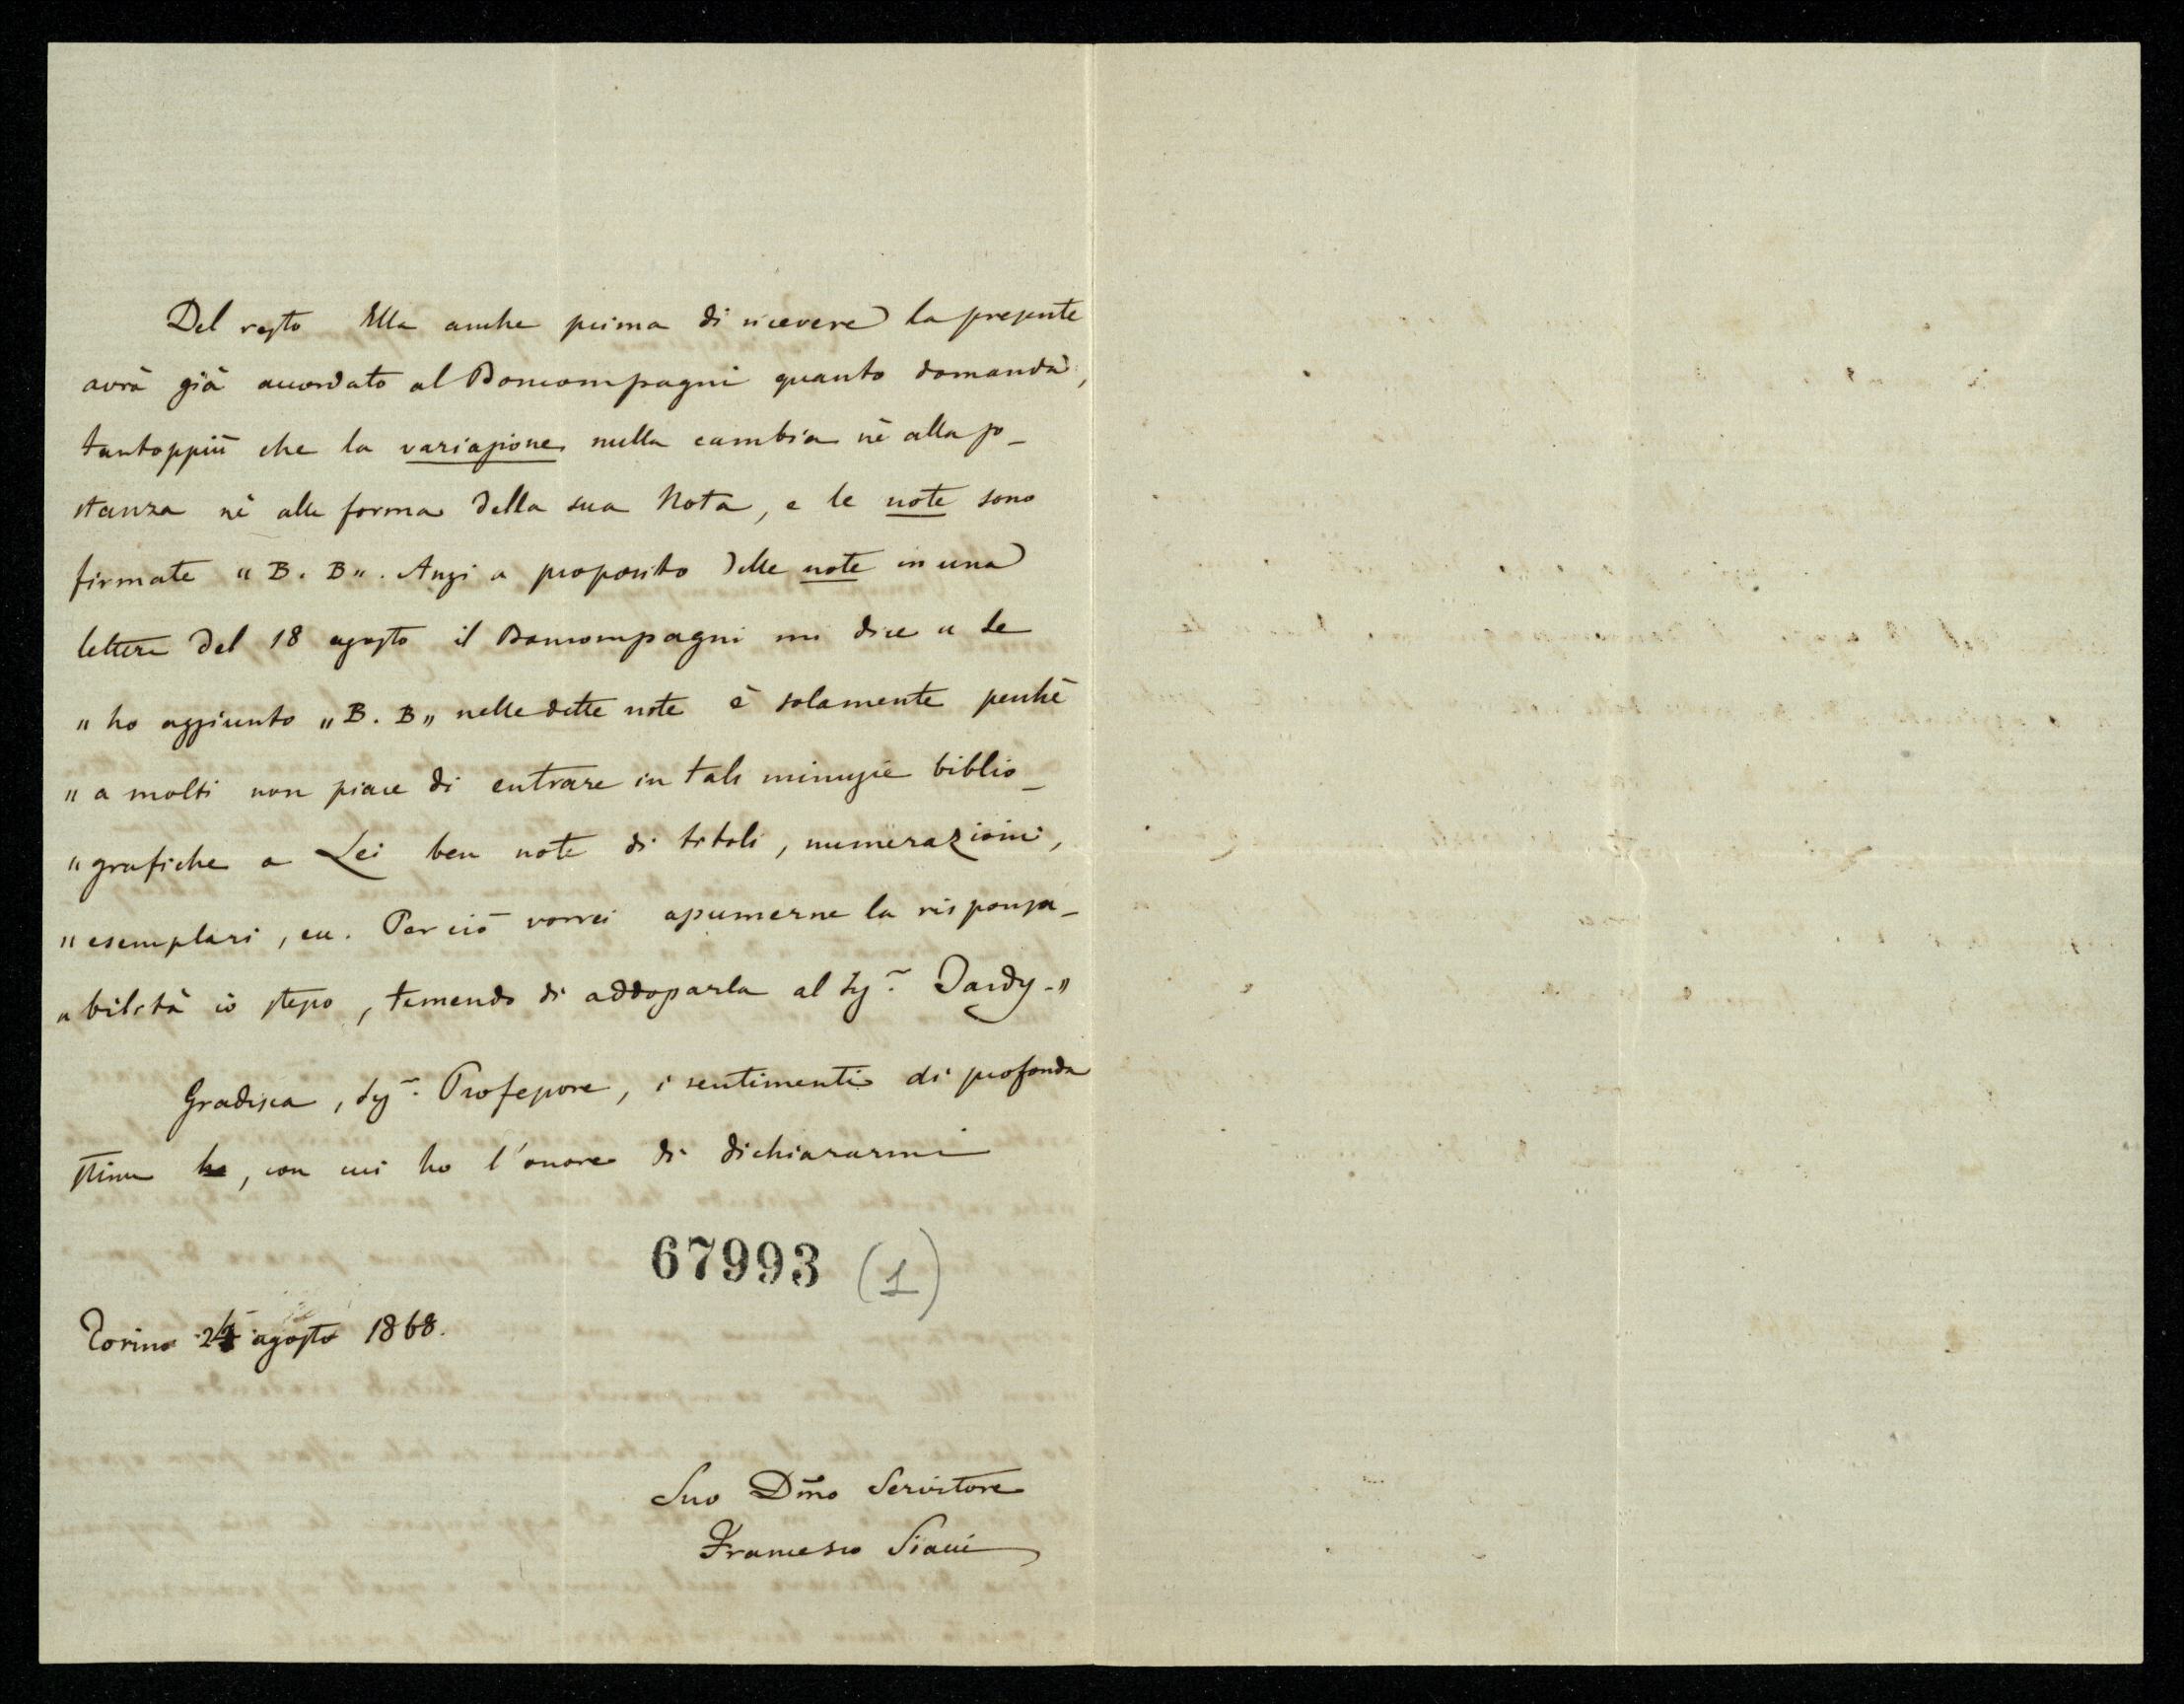 Del resto Ella anche prima di ricevere la presente
avrà già accordato al Boncompagni quanto domanda,
tantoppiù che la variazione nulla cambia nè alla so-
stanza nè alla forma della sua Nota, e le note sono
firmate "B. B". Anzi a proposito delle note in una
lettera del 18 agosto il Boncompagni mi dice " Se
" ho aggiunto "B. B" nelle dette note è solamente perchè
" a molti non piace di entrare in tali minuzie biblio-
" grafiche a Lei ben note di titoli, numerazioni,
" esemplari, ecc. Perciò vorrei assumerne la risponsa-
" bilità io stesso, temendo di addossarla al Sigr. Dardy."
Gradisca, Sigr. Professore, i sentimenti di profonda
stima, con cui ho l'onore di dichiararmi
67993 (1)
Torino agosto 1868.
Suo Dmo Servitore
Francesco Siacci